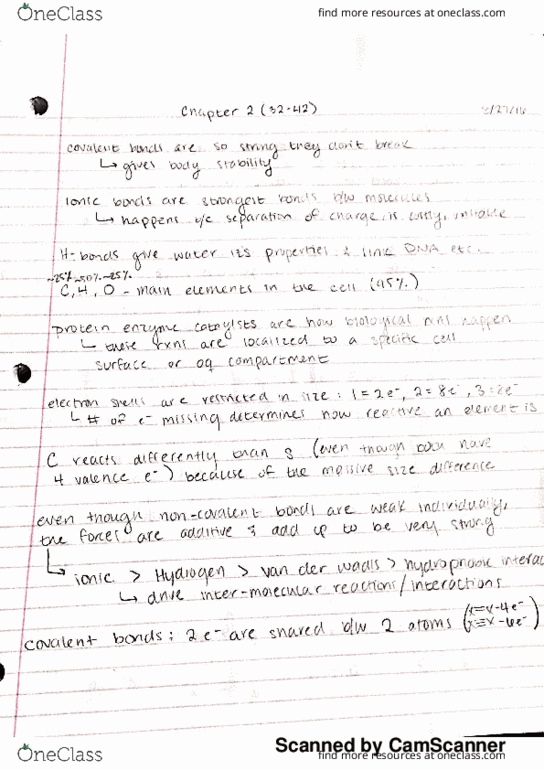 OneClass
find more resources at oneclass.com
Chapter 2 (32-42)
3/27/16
covalent bonds are so string they don't break
↳ gives body stability
ionic bonds are strongest bonds b/w molecules
↳ happens b/c separation of charge is costly, unstable
H-bonds give water it's properties & link DNA etc.
~25% ~50% ~25%
C, H, O - main elements in the cell (95%)
protein enzyme catalysts are how biological rxns happen
↳ these rxns are localized to a specific cell
surface or aq compartment
electron shells are restricted in size: 1=2e⁻, 2=8e⁻, 3=8e⁻
↳ # of e⁻ missing determines how reactive an element is
C reacts differently than (even though both have
4 valence e⁻) because of the massive size difference
even though non-covalent bonds are weak individually,
the forces are additive & add up to be very strong
↳ ionic > Hydrogen > van der waals > hydrophobic interac
↳ drive inter-molecular reactions/interactions
covalent bonds: 2e⁻ are shared b/w 2 atoms (x=x-4e⁻
x≡x-6e⁻)
Scanned by CamScanner
OneClass
find more resources at oneclass.com